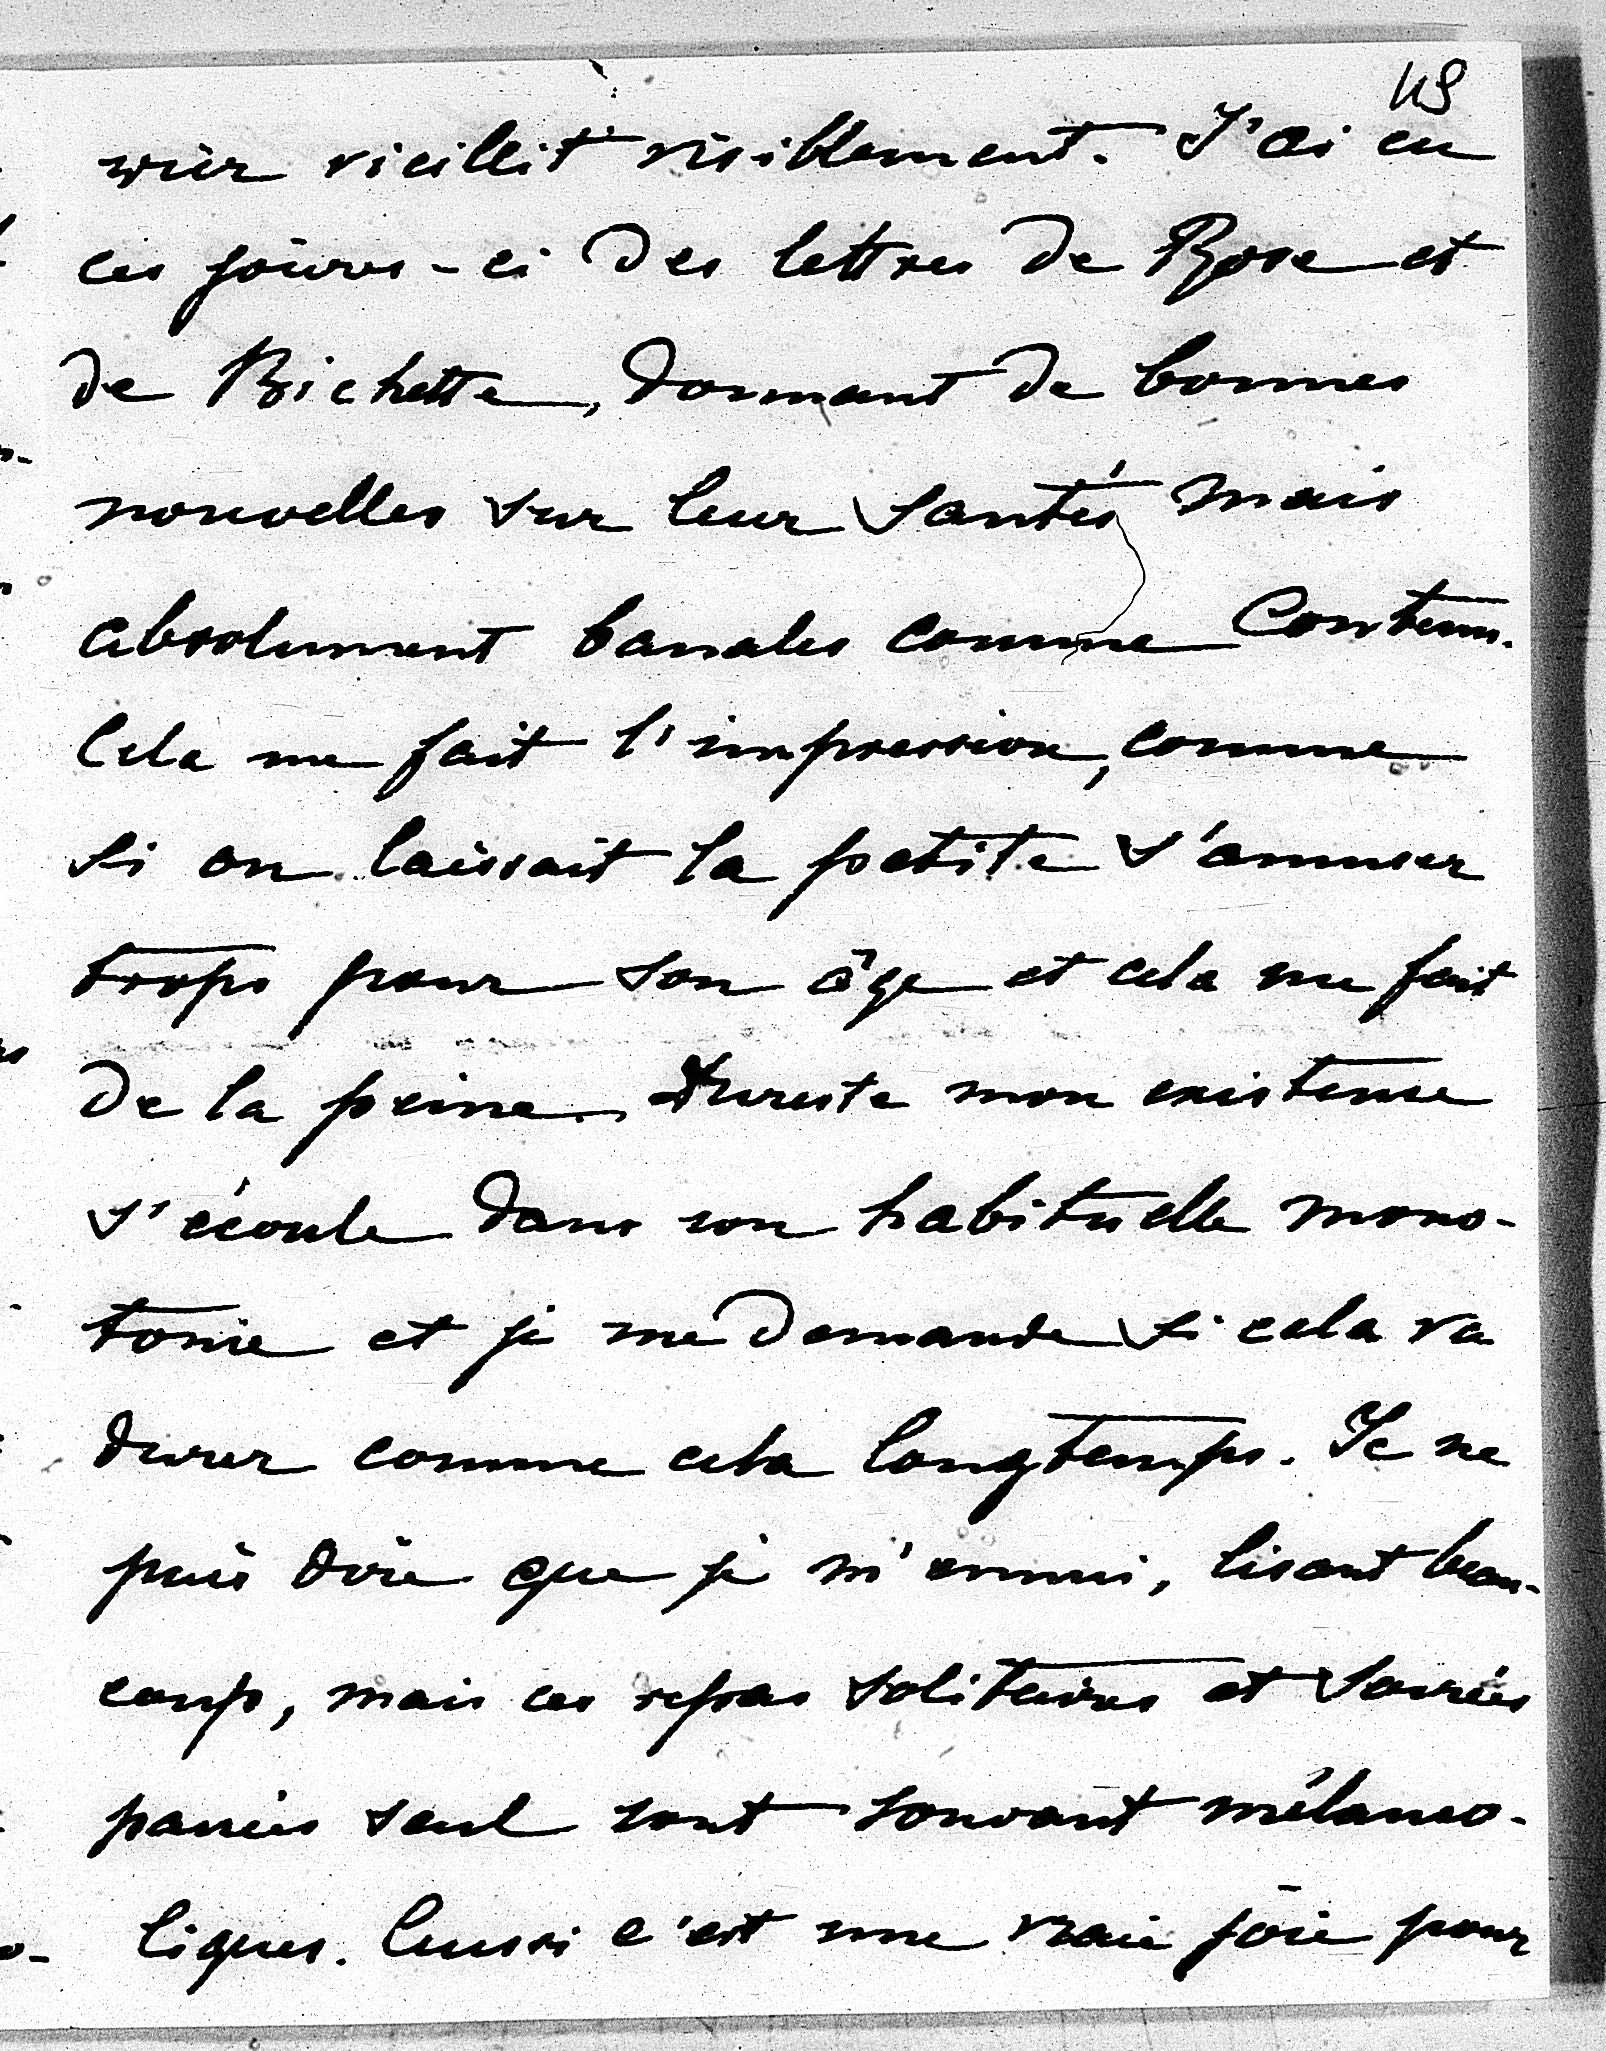 49
wier vieillit visiblement. J'ai eu
ces jours-ci des lettres de Rose et
de Bichette, donnant de bonnes
nouvelles sur leur santés mais
absolument banales comme contenu.
Cela me fait l'impression, comme
si on laissait la petite s'amuser
trops pour son âge et cela me fait
de la peine. Dureste mon existence
s'écoule dans son habituelle mono-
tonie et je me demande si cela va
durer comme cela longtemps. Je ne
puis dire que je m'ennui, lisant beau-
coup, mais ces repas solitaires et soirées
passées seul sont souvant mélanco-
liques. Aussi c'est une vraie joie pour